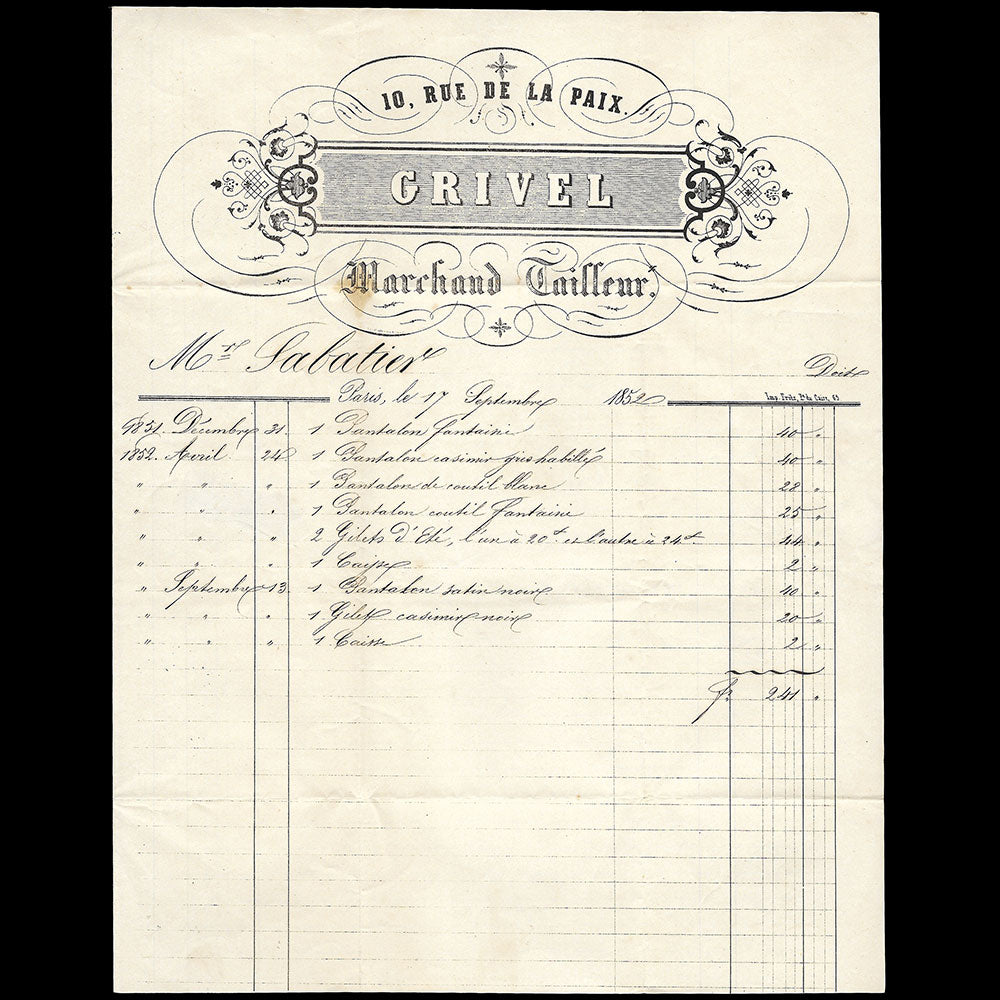 10, RUE DE LA PAIX.
GRIVEL
Marchand Tailleur.
Mr Sabatier
Doit
Paris, le 17 Septembre 1852
Imp. Fritz, Pge du Caire, 63
1851. Décembre 31. 1 Pantalon fantaisie 40 "
1852. Avril 24 1 Pantalon casimir gris habillé 40 "
" " " 1 Pantalon de coutil blanc 28 "
" " " 1 Pantalon coutil fantaisie 25 "
" " " 2 Gilets d'Eté, l'un à 20f. et l'autre à 24f 44 "
" " " 1 Caisse 2 "
" Septembre 13. 1 Pantalon satin noir 40 "
" " " 1 Gilet casimir noir 20 "
" " " 1 Caisse 2 "
fr 241 "